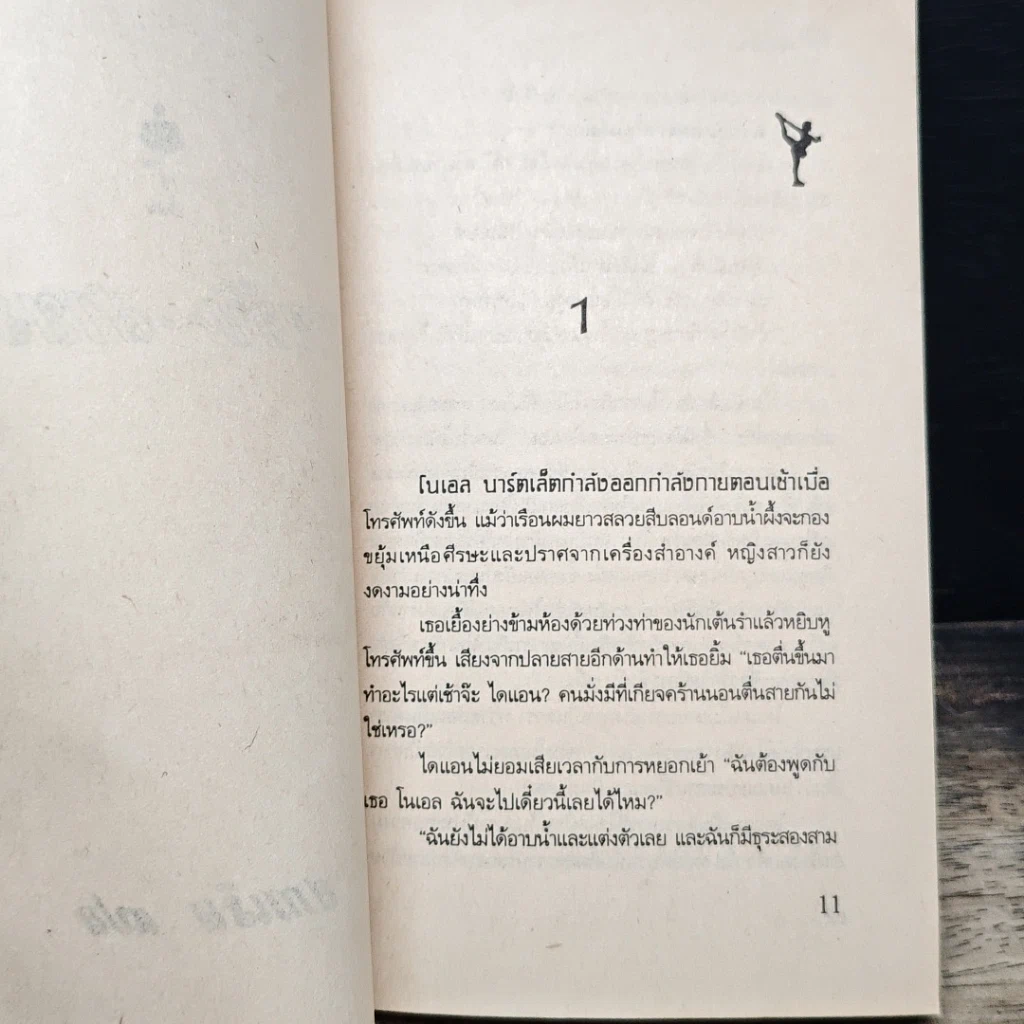 1
โนเอล บาร์ตเล็ตกำลังออกกำลังกายตอนเช้าเมื่อ
โทรศัพท์ดังขึ้น แม้ว่าเรือนผมยาวสลวยสีบลอนด์อาบน้ำผึ้งจะกอง
ขยุ้มเหนือศีรษะและปราศจากเครื่องสำอางค์ หญิงสาวก็ยัง
งดงามอย่างน่าทึ่ง
เธอเยื้องย่างข้ามห้องด้วยท่วงท่าของนักเต้นรำแล้วหยิบหู
โทรศัพท์ขึ้น เสียงจากปลายสายอีกด้านทำให้เธอยิ้ม “เธอตื่นขึ้นมา
ทำอะไรแต่เช้าจ๊ะ ไดแอน? คนมั่งมีที่เกียจคร้านนอนตื่นสายกันไม่
ใช่เหรอ?”
ไดแอนไม่ยอมเสียเวลากับการหยอกเย้า “ฉันต้องพูดกับ
เธอ โนเอล ฉันจะไปเดี๋ยวนี้เลยได้ไหม?”
“ฉันยังไม่ได้อาบน้ำและแต่งตัวเลย และฉันก็มีธุระสองสาม
11